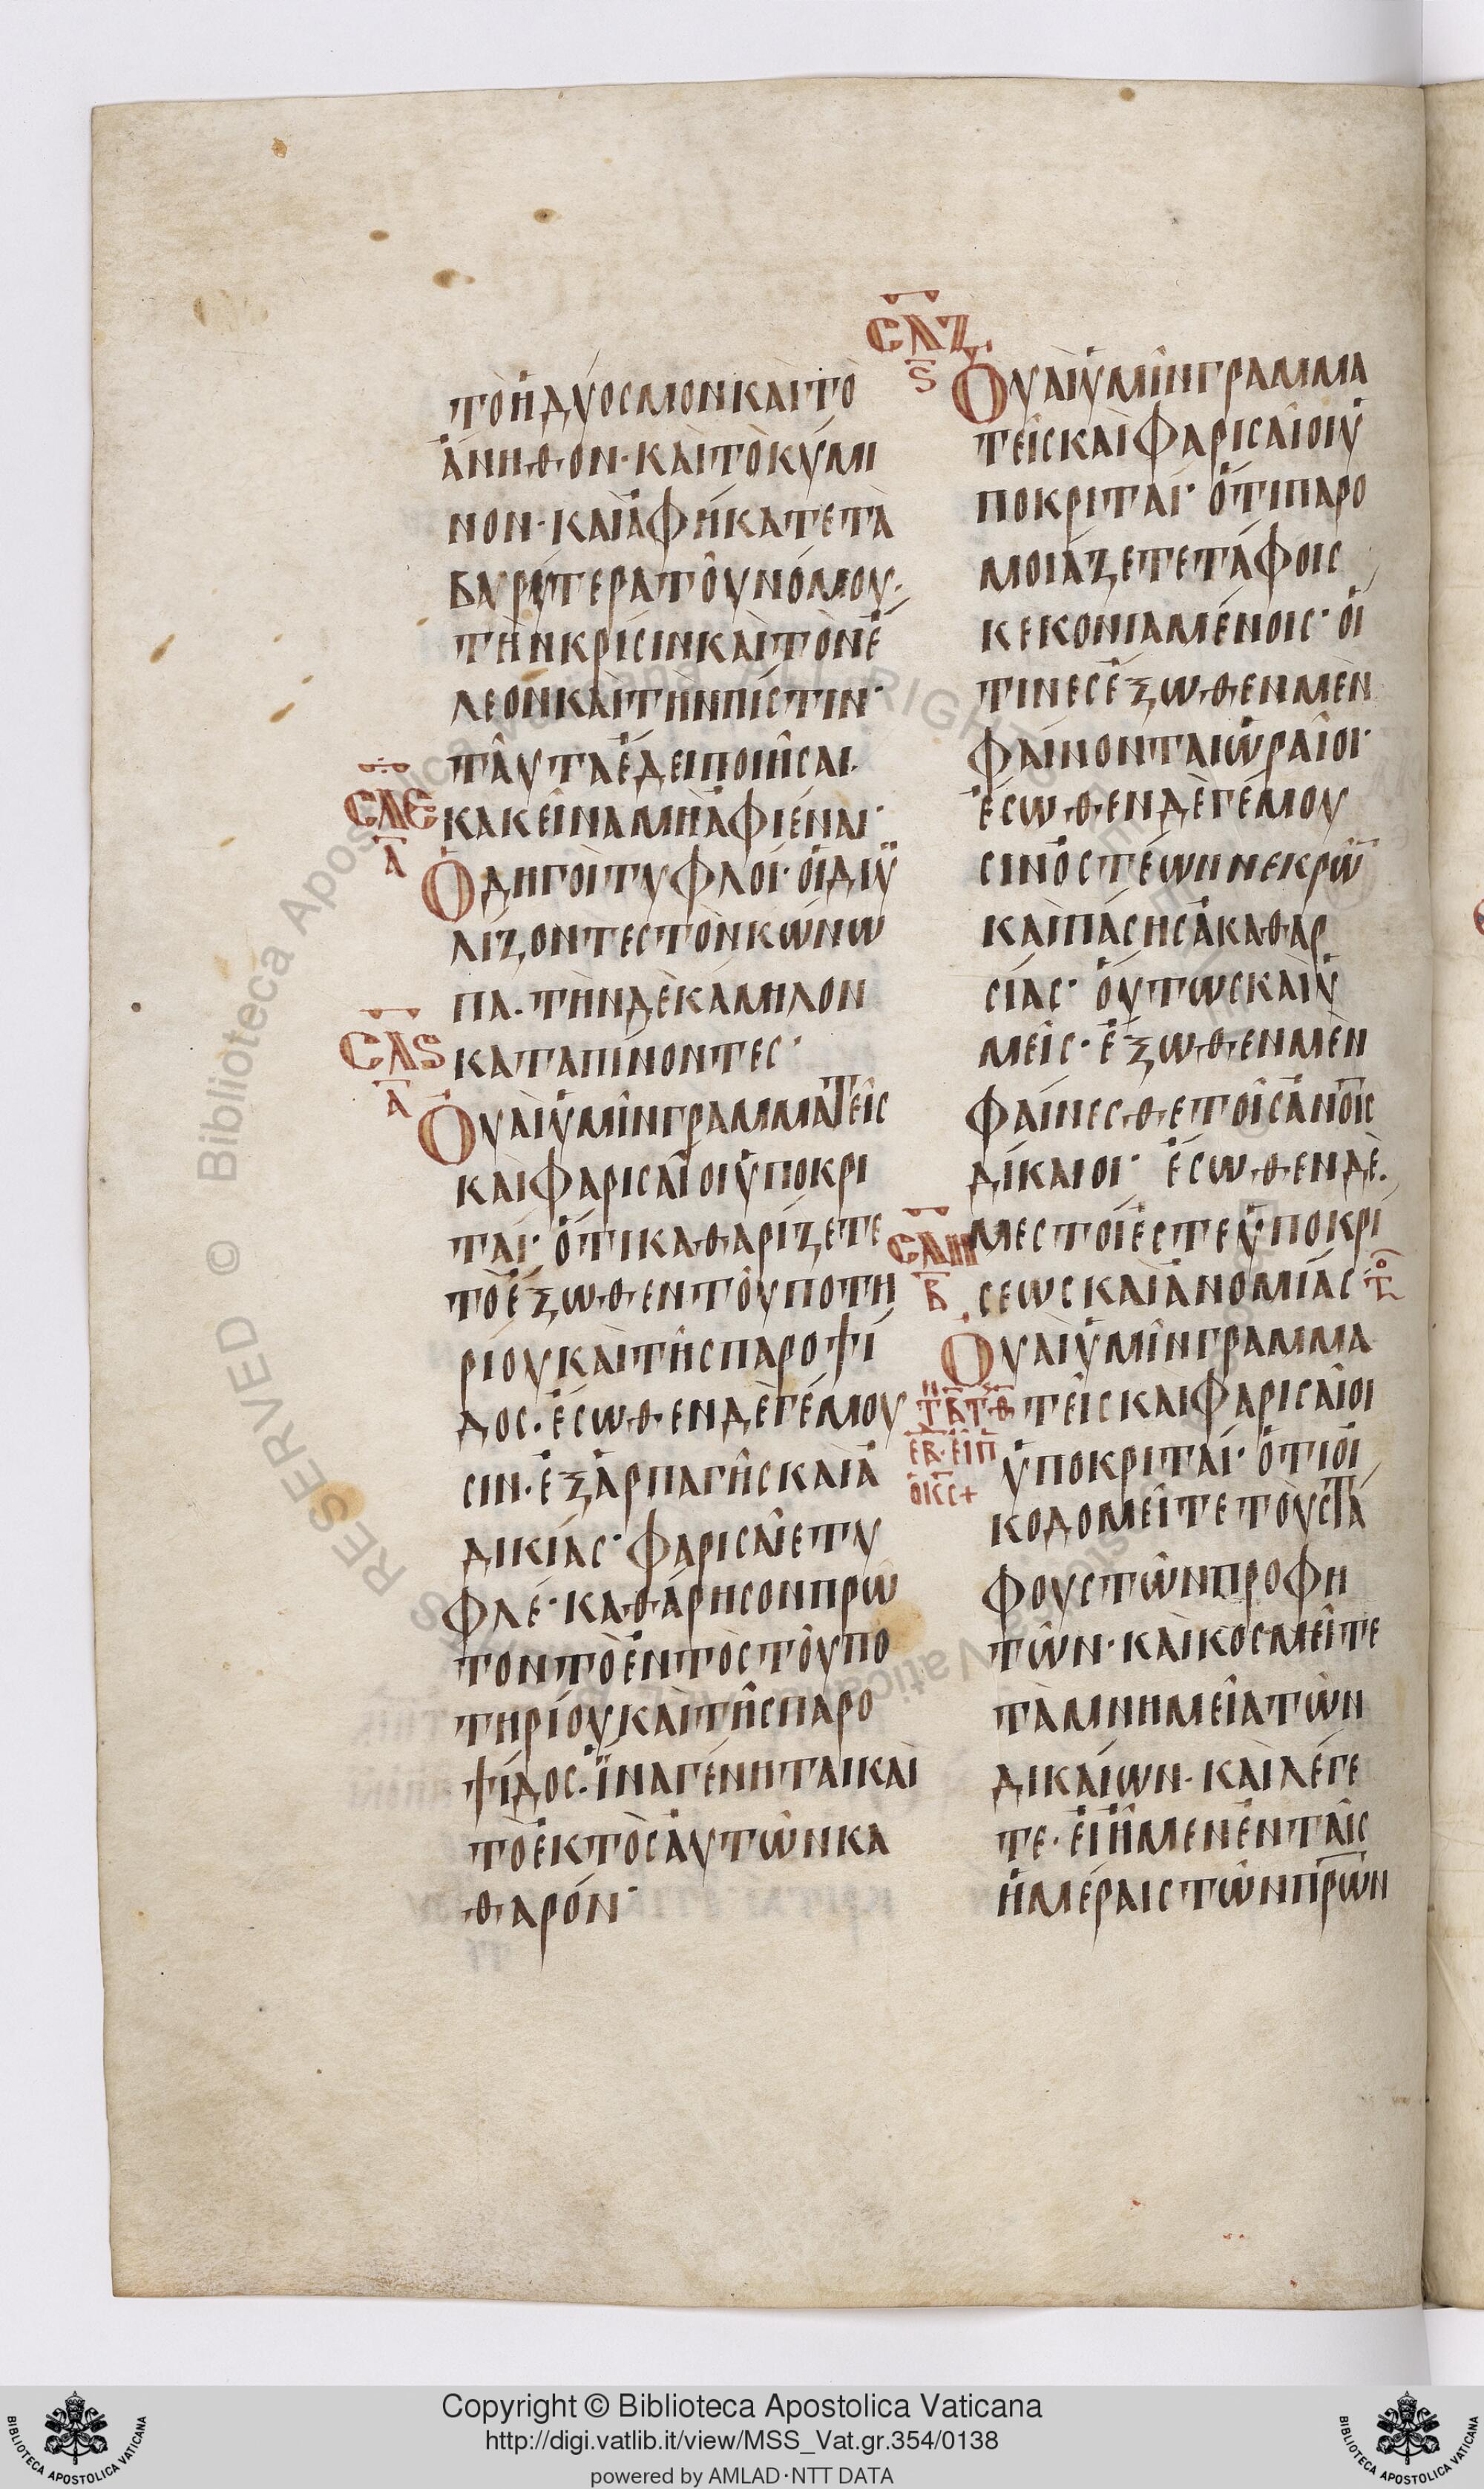 τὸ ἡδύοσμον καὶ τὸ
ἄνηθον· καὶ τὸ κύμι
νον· καὶ ἀφήκατε τὰ
βαρύτερα τοῦ νόμου·
τὴν κρίσιν καὶ τὸν ἔ
λεον καὶ τὴν πίστιν·
ταῦτα ἔδει ποιῆσαι.
σλε
κακεῖνα μὴ ἀφιέναι·
α
Ὁδηγοὶ τυφλοί· οἱ διϋ
λίζοντες τὸν κώνω
πα. τὴν δὲ κάμηλον
σλϛ
καταπίνοντες·
α
Οὐαὶ ὑμῖν γραμματεῖς
καὶ φαρισαῖοι ὑποκρι
ταί· ὅτι καθαρίζετε
τὸ ἔξωθεν τοῦ ποτη
ρίου καὶ τῆς παροψί
δος· ἔσωθεν δὲ γέμου
σιν· ἐξ ἁρπαγῆς καὶ ἀ
δικίας· φαρισαῖε τυ
φλέ· καθάρησον πρῶ
τον τὸ ἐντὸς τοῦ πο
τηρίου καὶ τῆς παρο
ψίδος· ἵνα γένηται καὶ
τὸ ἐκτὸς αὐτῶν κα
θαρόν·
σλζ
ϛ
Οὐαὶ ὑμῖν γραμμα
τεῖς καὶ φαρισαῖοι ὑ
ποκριταί· ὅτι παρο
μοιάζετε τάφοις
κεκονιαμένοις· οἵ
τινες ἔξωθεν μὲν
φαίνονται ὡραῖοι·
ἔσωθεν δὲ γέμου
σιν ὀστέων νεκρῶ̅
καὶ πάσης ἀκαθαρ
σίας· οὕτως καὶ ὑ
μεῖς· ἔξωθεν μὲν
φαίνεσθε τοῖς ἀν̅οις
δίκαιοι· ἔσωθεν δὲ.
σλη
μεστοί ἐστε ὑποκρί
β
σεως καὶ ἀνομίας
Οὐαὶ ὑμῖν γραμμα
τεῖς καὶ φαρισαῖοι
ὑποκριταί· ὅτι οἰ
κοδομεῖτε τοὺς τά
φους τῶν προφη
τῶν· καὶ κοσμεῖτε
τὰ μνημεῖα τῶν
δικαίων· καὶ λέγε
τε· εἰ ἤμεν ἐν ταῖς
ἡμέραις τῶν πρ̅ων
Copyright © Biblioteca Apostolica Vaticana
http://digi.vatlib.it/view/MSS_Vat.gr.354/0138
powered by AMLAD·NTT DATA
BIBLIOTECA APOSTOLICA VATICANA
BIBLIOTECA APOSTOLICA VATICANA